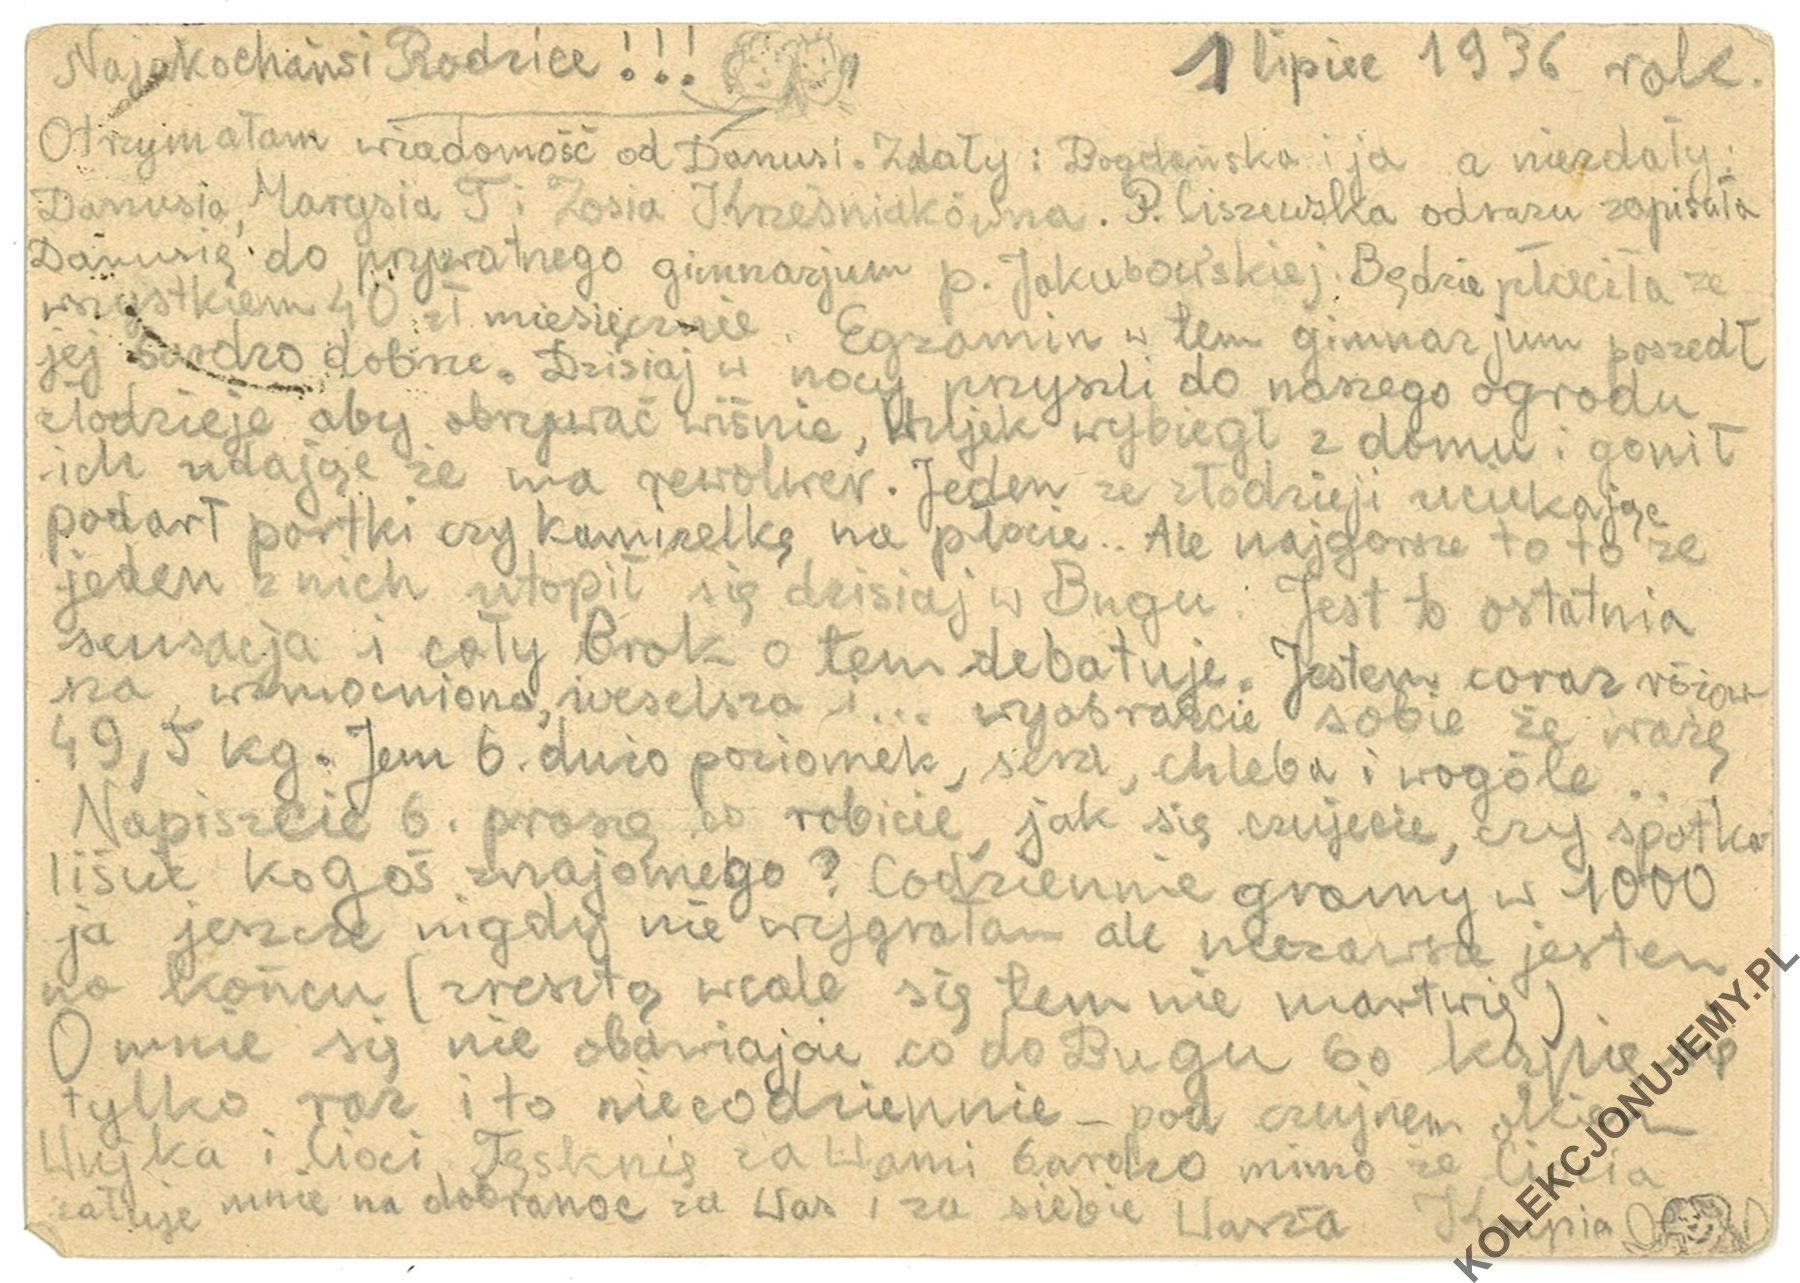 Najukochańsi Rodzice!!! 1 lipiec 1936 rok.
Otrzymałam wiadomość od Danusi. Zdały: Bogdańska i ja a niezdały:
Danusia, Marysia T i Zosia Krześniakówna. P. Ciszewska odrazu zapisała
Danusię do prywatnego gimnazjum p. Jakubowskiej. Będzie płaciła ze
wszystkiem 40 zł miesięcznie. Egzamin w tem gimnazjum poszedł
jej bardzo dobrze. Dzisiaj w nocy przyszli do naszego ogrodu
złodzieje aby obrywać wiśnie, Wujek wybiegł z domu i gonił
ich udając że ma rewolwer. Jeden ze złodzieji uciekając
podarł portki czy kamizelkę na płocie.. Ale najgorsze to to że
jeden z nich utopił się dzisiaj w Bugu. Jest to ostatnia
sensacja i cały Brok o tem debatuje. Jestem coraz różow
sza, wzmocniona, weselsza i... wyobraźcie sobie że ważę
49,5 kg. Jem b. dużo poziomek, sera, chleba i wogóle ...
Napiszcie b. proszę co robicie, jak się czujecie, czy spotka
liście kogoś znajomego? Codziennie gramy w 1000
ja jeszcze nigdy nie wygrałam ale niezawsze jestem
na końcu (zresztą wcale się tem nie martwię)
O mnie się nie obawiajcie co do Bugu bo kąpię się
tylko raz i to niecodziennie – pod czujnem okiem
Wujka i Cioci. Tęsknię za Wami bardzo mimo że Ciocia
całuje mnie na dobranoc za Was i za siebie Wasza
KOLEKCJONUJEMY.PL